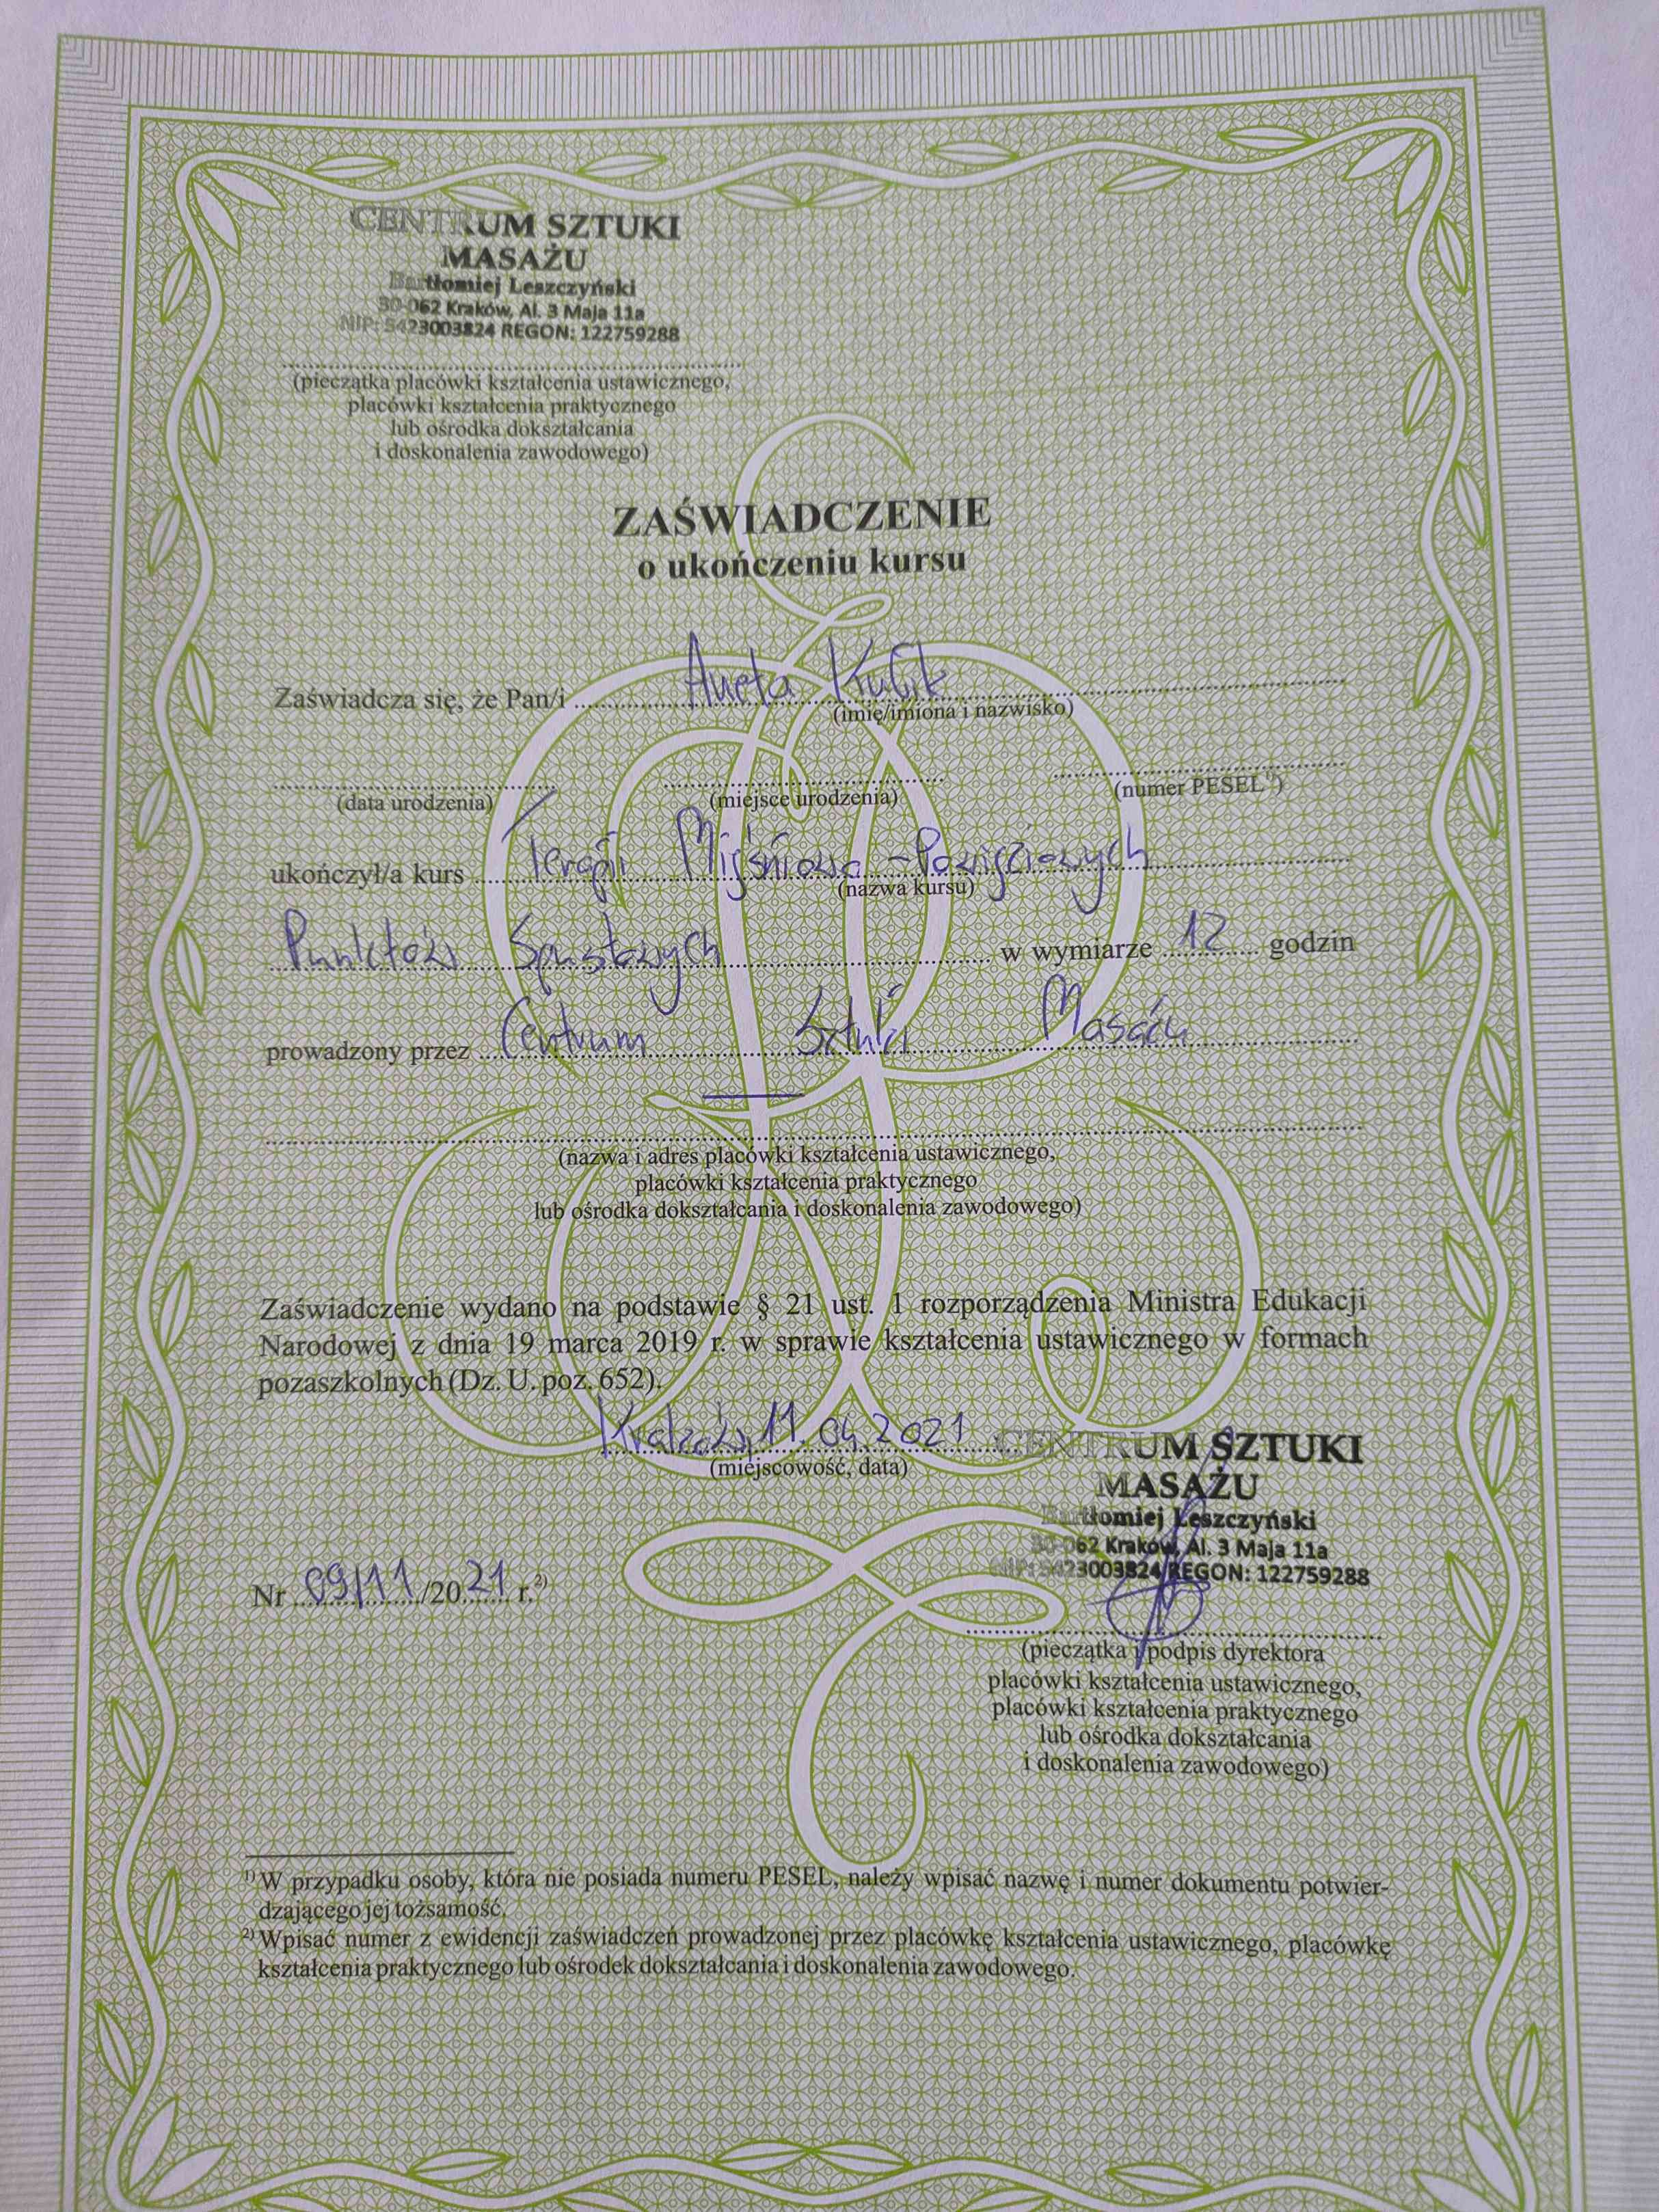 CENTRUM SZTUKI
MASAŻU
Bartłomiej Leszczyński
30-062 Kraków, Al. 3 Maja 11a
NIP: 5423003824 REGON: 122759288
(pieczątka placówki kształcenia ustawicznego,
placówki kształcenia praktycznego
lub ośrodka dokształcania
i doskonalenia zawodowego)
ZAŚWIADCZENIE
o ukończeniu kursu
Zaświadcza się, że Pan/i Aneta Kulik
(imię/imiona i nazwisko)
(data urodzenia) (miejsce urodzenia) (numer PESEL¹⁾)
ukończył/a kurs Terapii Mięśniowo-Powięziowych
(nazwa kursu)
Punktów Spustowych w wymiarze 12 godzin
prowadzony przez Centrum Sztuki Masażu
(nazwa i adres placówki kształcenia ustawicznego,
placówki kształcenia praktycznego
lub ośrodka dokształcania i doskonalenia zawodowego)
Zaświadczenie wydano na podstawie § 21 ust. 1 rozporządzenia Ministra Edukacji
Narodowej z dnia 19 marca 2019 r. w sprawie kształcenia ustawicznego w formach
pozaszkolnych (Dz. U. poz. 652).
Kraków, 11.04.2021
(miejscowość, data)
CENTRUM SZTUKI
MASAŻU
Bartłomiej Leszczyński
30-062 Kraków, Al. 3 Maja 11a
NIP: 5423003824 REGON: 122759288
Nr 09/11/2021 r.²⁾
(pieczątka i podpis dyrektora
placówki kształcenia ustawicznego,
placówki kształcenia praktycznego
lub ośrodka dokształcania
i doskonalenia zawodowego)
¹⁾ W przypadku osoby, która nie posiada numeru PESEL, należy wpisać nazwę i numer dokumentu potwier-
dzającego jej tożsamość.
²⁾ Wpisać numer z ewidencji zaświadczeń prowadzonej przez placówkę kształcenia ustawicznego, placówkę
kształcenia praktycznego lub ośrodek dokształcania i doskonalenia zawodowego.